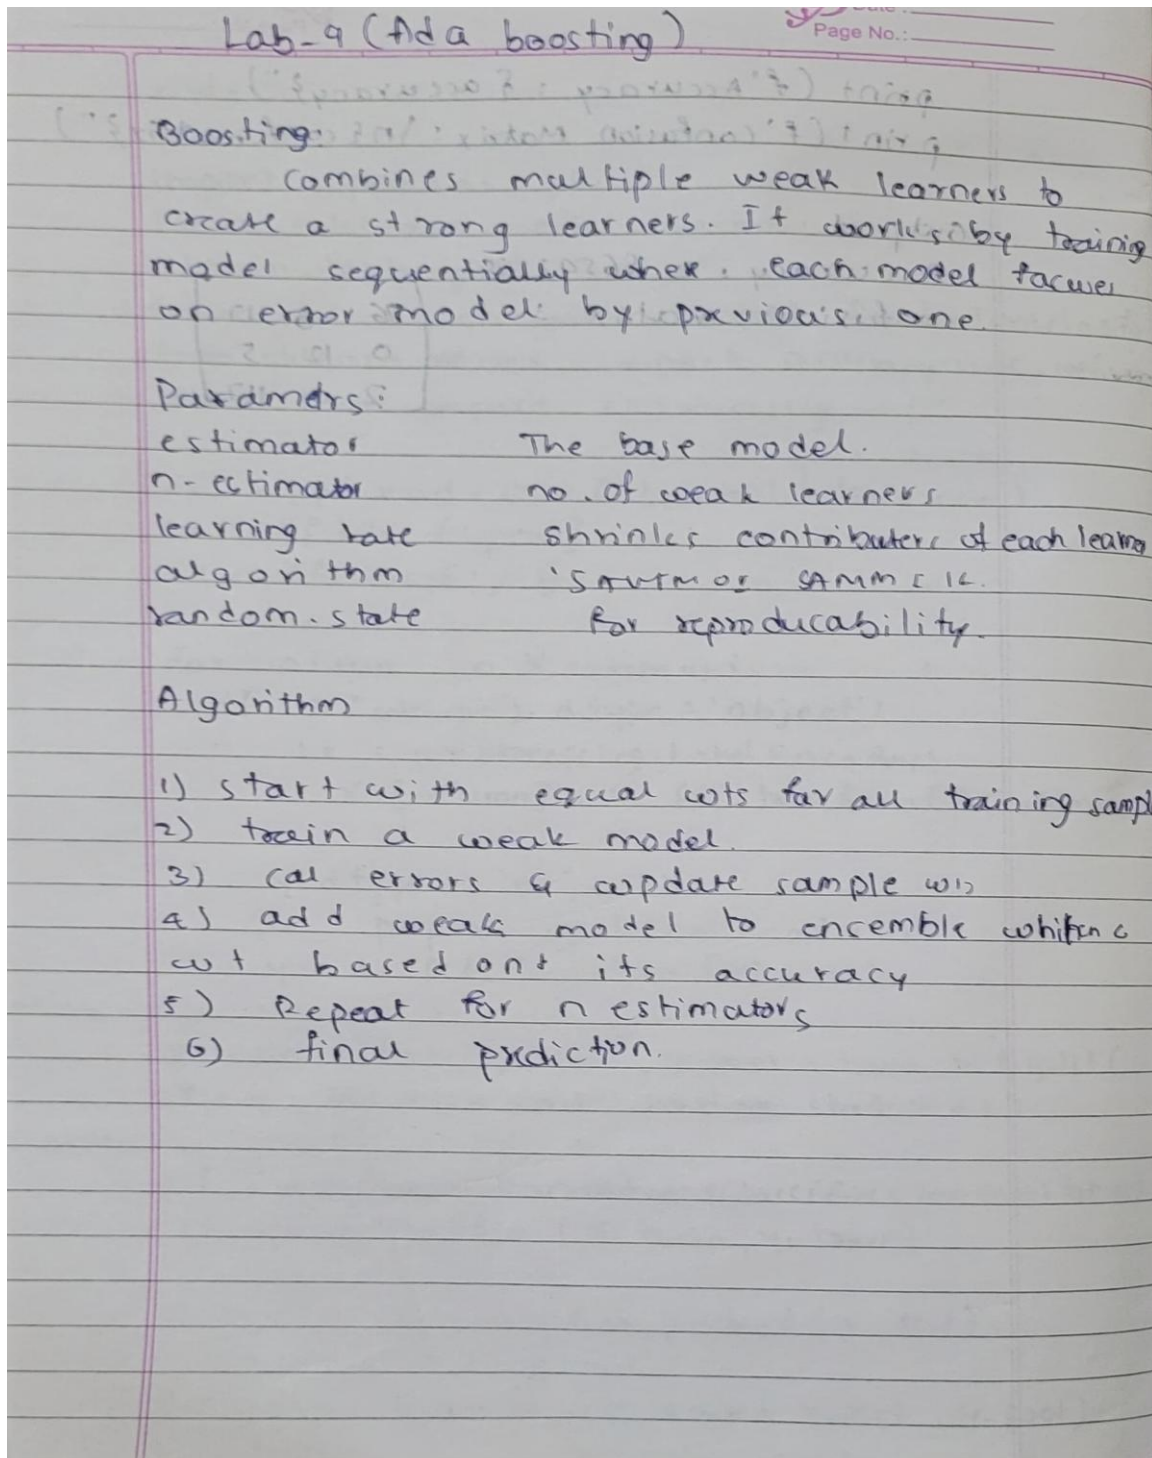 Lab-9 (Ada boosting)
Page No.:
Boosting:
combines multiple weak learners to
create a strong learners. It works by training
model sequentially where each model
on error model by previous one
Paramers:
estimator The base model.
n-estimator no. of weak learners
learning rate shrinks of each learner
algorithm
random.state for reproducability.
Algorithm
1) start with equal wts for all training sampl
2) train a weak model.
3) cal errors & update sample
4) add weak model to ensemble
wt based on its accuracy
5) Repeat for n estimators
6) final prediction.